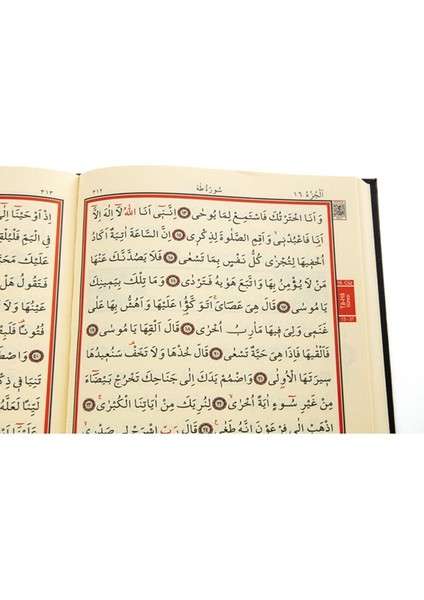 اَلْجُزْءُ ١٦ سُورَةُ طٰهٰ ٣١٢
وَاَنَا اخْتَرْتُكَ فَاسْتَمِعْ لِمَا يُوحٰى ﴿١٣﴾ اِنَّنٖٓي اَنَا اللّٰهُ لَٓا اِلٰهَ اِلَّٓا
اَنَا فَاعْبُدْنٖي وَاَقِمِ الصَّلٰوةَ لِذِكْرٖي ﴿١٤﴾ اِنَّ السَّاعَةَ اٰتِيَةٌ اَكَادُ
اُخْفٖيهَا لِتُجْزٰى كُلُّ نَفْسٍ بِمَا تَسْعٰى ﴿١٥﴾ فَلَا يَصُدَّنَّكَ عَنْهَا
مَنْ لَا يُؤْمِنُ بِهَا وَاتَّبَعَ هَوٰيهُ فَتَرْدٰى ﴿١٦﴾ وَمَا تِلْكَ بِيَمٖينِكَ
يَا مُوسٰى ﴿١٧﴾ قَالَ هِيَ عَصَايَۚ اَتَوَكَّؤُ۬ا عَلَيْهَا وَاَهُشُّ بِهَا عَلٰى
غَنَمٖي وَلِيَ فٖيهَا مَاٰرِبُ اُخْرٰى ﴿١٨﴾ قَالَ اَلْقِهَا يَا مُوسٰى ﴿١٩﴾
فَاَلْقٰيهَا فَاِذَا هِيَ حَيَّةٌ تَسْعٰى ﴿٢٠﴾ قَالَ خُذْهَا وَلَا تَخَفْ۠ سَنُعٖيدُهَا
سٖيرَتَهَا الْاُو۫لٰى ﴿٢١﴾ وَاضْمُمْ يَدَكَ اِلٰى جَنَاحِكَ تَخْرُجْ بَيْضَٓاءَ
مِنْ غَيْرِ سُٓوءٍ اٰيَةً اُخْرٰىۙ ﴿٢٢﴾ لِنُرِيَكَ مِنْ اٰيَاتِنَا الْكُبْرٰىۚ ﴿٢٣﴾
اِذْهَبْ اِلٰى فِرْعَوْنَ اِنَّهُ طَغٰى۟ ﴿٢٤﴾ قَالَ رَبِّ اشْرَحْ لٖي صَدْرٖيۙ
Tâ-Hâ
٣١٣
اِذْ اَوْحَيْنَٓا اِلٰٓى
فِي الْيَمِّ فَلْيُلْقِ
عَلَيْكَ
فَتَقُولُ هَلْ
عَيْنُهَا
فُتُونًا
﴿٤٠﴾
تَنِيَا فٖي
لَيِّنًا لَعَلَّهُ
عَلَيْنَٓا